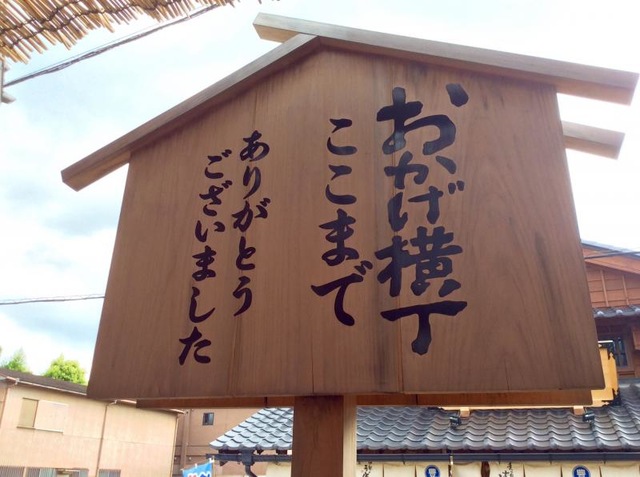 おかげ横丁
ここまで
ありがとう
ございました